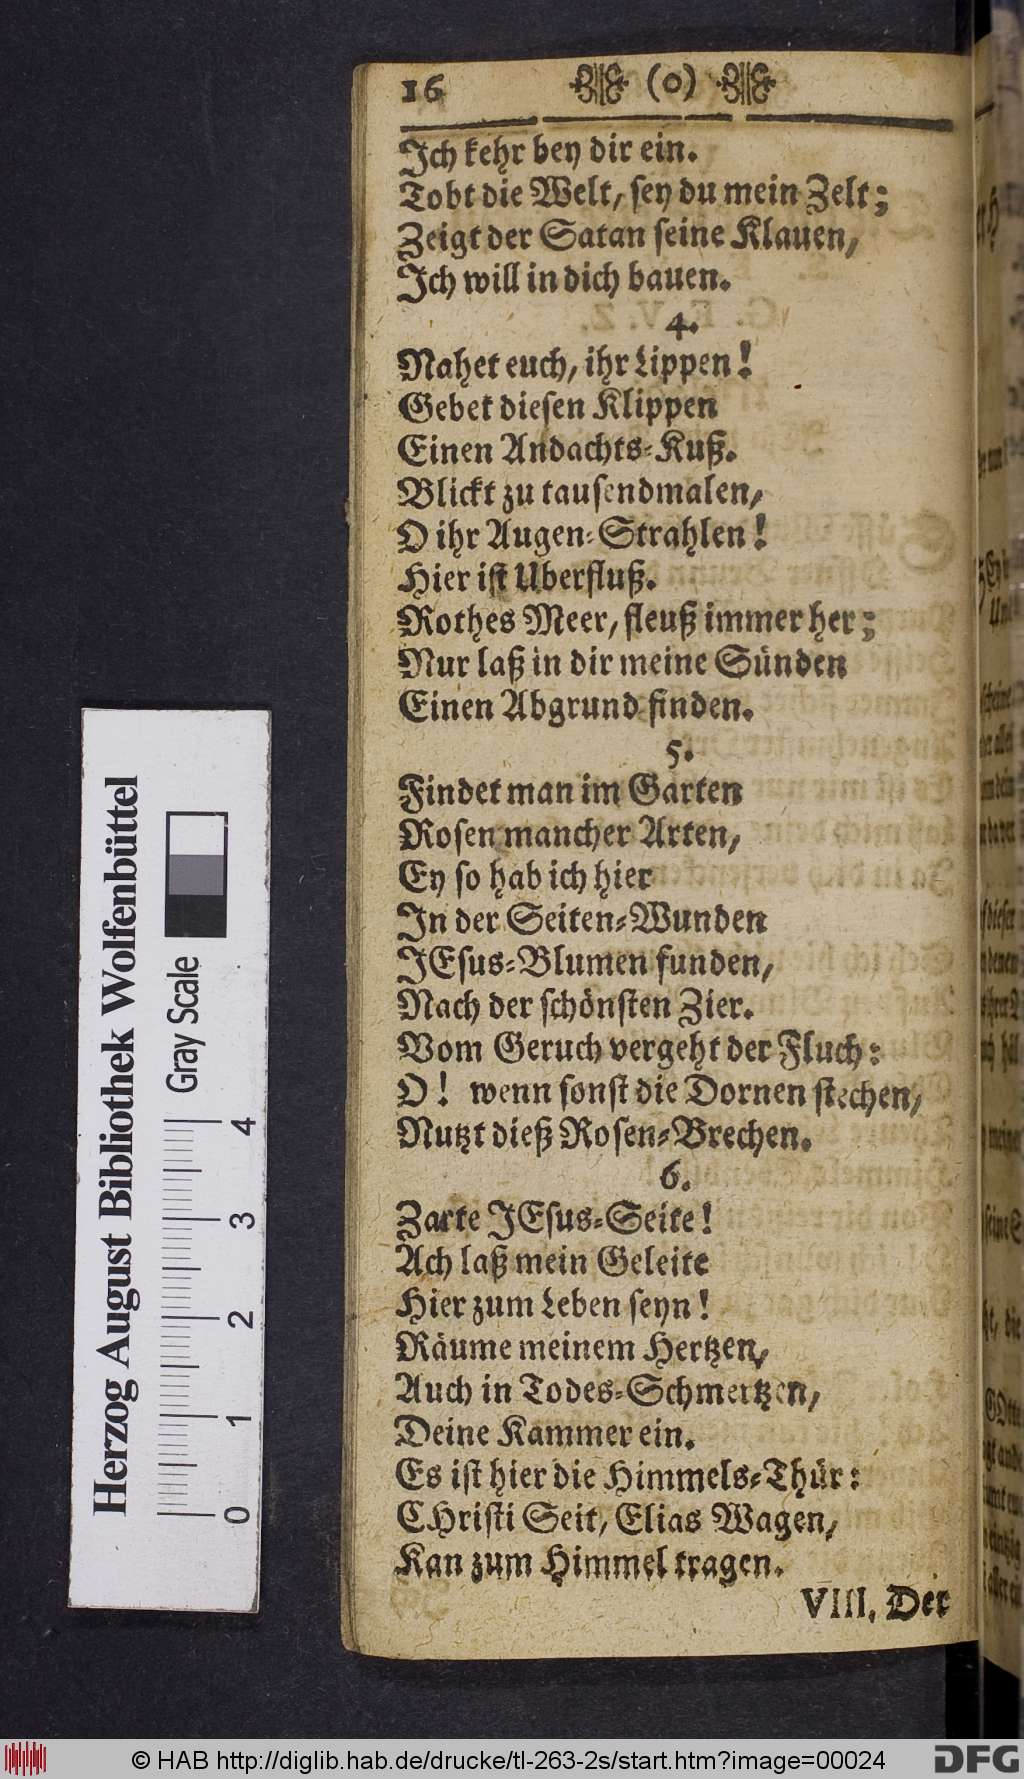 16 (o)
Ich kehr bey dir ein.
Tobt die Welt, sey du mein Zelt;
Zeigt der Satan seine Klauen,
Ich will in dich bauen.
4.
Nahet euch, ihr Lippen!
Gebet diesen Klippen
Einen Andachts-Kuß.
Blickt zu tausendmalen,
O ihr Augen-Strahlen!
Hier ist Uberfluß.
Rothes Meer, fleuß immer her;
Nur laß in dir meine Sünden
Einen Abgrund finden.
5.
Findet man im Garten
Rosen mancher Arten,
Ey so hab ich hier
In der Seiten-Wunden
JEsus-Blumen funden,
Nach der schönsten Zier.
Vom Geruch vergeht der Fluch:
O! wenn sonst die Dornen stechen,
Nutzt dieß Rosen-Brechen.
6.
Zarte JEsus-Seite!
Ach laß mein Geleite
Hier zum Leben seyn!
Räume meinem Hertzen,
Auch in Todes-Schmertzen,
Deine Kammer ein.
Es ist hier die Himmels-Thür:
CHristi Seit, Elias Wagen,
Kan zum Himmel tragen.
VIII. Der
Herzog August Bibliothek Wolfenbüttel
Gray Scale
0 1 2 3 4
© HAB http://diglib.hab.de/drucke/tl-263-2s/start.htm?image=00024
DFG